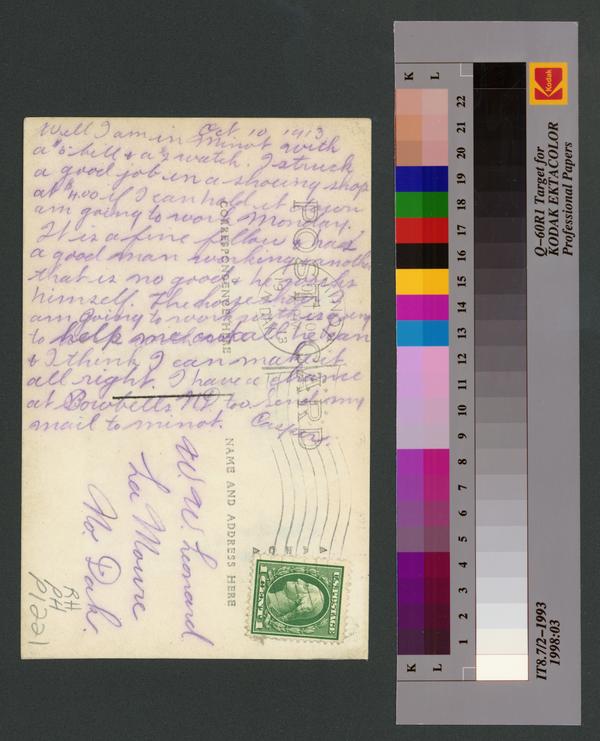 Oct 10 1913
Well I am in Minot with
a bill & a watch. I struck
a good job in a shoeing shop
at 4.00 if I can hold it down
am going to work Monday.
It is a fine fellow has
a good man working another
that is no good & he works
himself. The horse shoer I
am going to work with is going
to help me all he can
& I think I can make it
all right. I have a chance
at Bowbells ND too send my
mail to minot. Casper.
POST CARD
CORRESPONDENCE HERE
NAME AND ADDRESS HERE
W. W. Lenard
La Moure
No. Dak.
U.S. POSTAGE
1 CENT 1
RH
PH
P1221
K L
22
21
20
19
18
17
16
15
14
13
12
11
10
9
8
7
6
5
4
3
2
1
K L
Kodak
Q-60R1 Target for
KODAK EKTACOLOR
Professional Papers
IT8.7/2-1993
1998:03